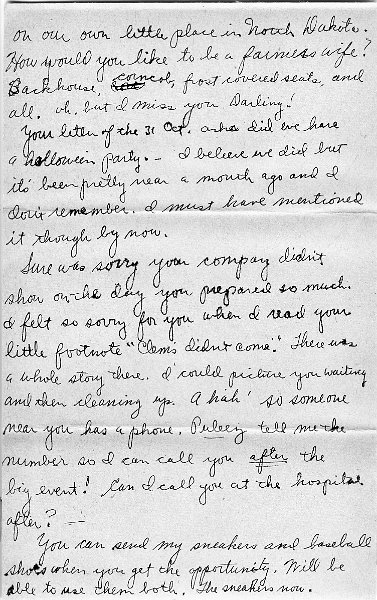 on our own little place in North Dakota.
How would you like to be a farmers wife?
Backhouse, corncob, frost covered seats, and
all. oh, but I miss you Darling!
Your letter of the 31 Oct. asks did we have
a halloween party. — I believe we did but
it's been pretty near a month ago and I
don't remember. I must have mentioned
it though by now.
Sure was sorry your company didn't
show on the day you prepared so much.
I felt so sorry for you when I read your
little footnote "Clems didn't come." There was
a whole story there. I could picture you waiting
and then cleaning up. A hah! so someone
near you has a phone. tell me the
number so I can call you after the
big event! Can I call you at the hospital
after? —
You can send my sneakers and baseball
shoes when you get the opportunity. Will be
able to use them both. The sneakers now.